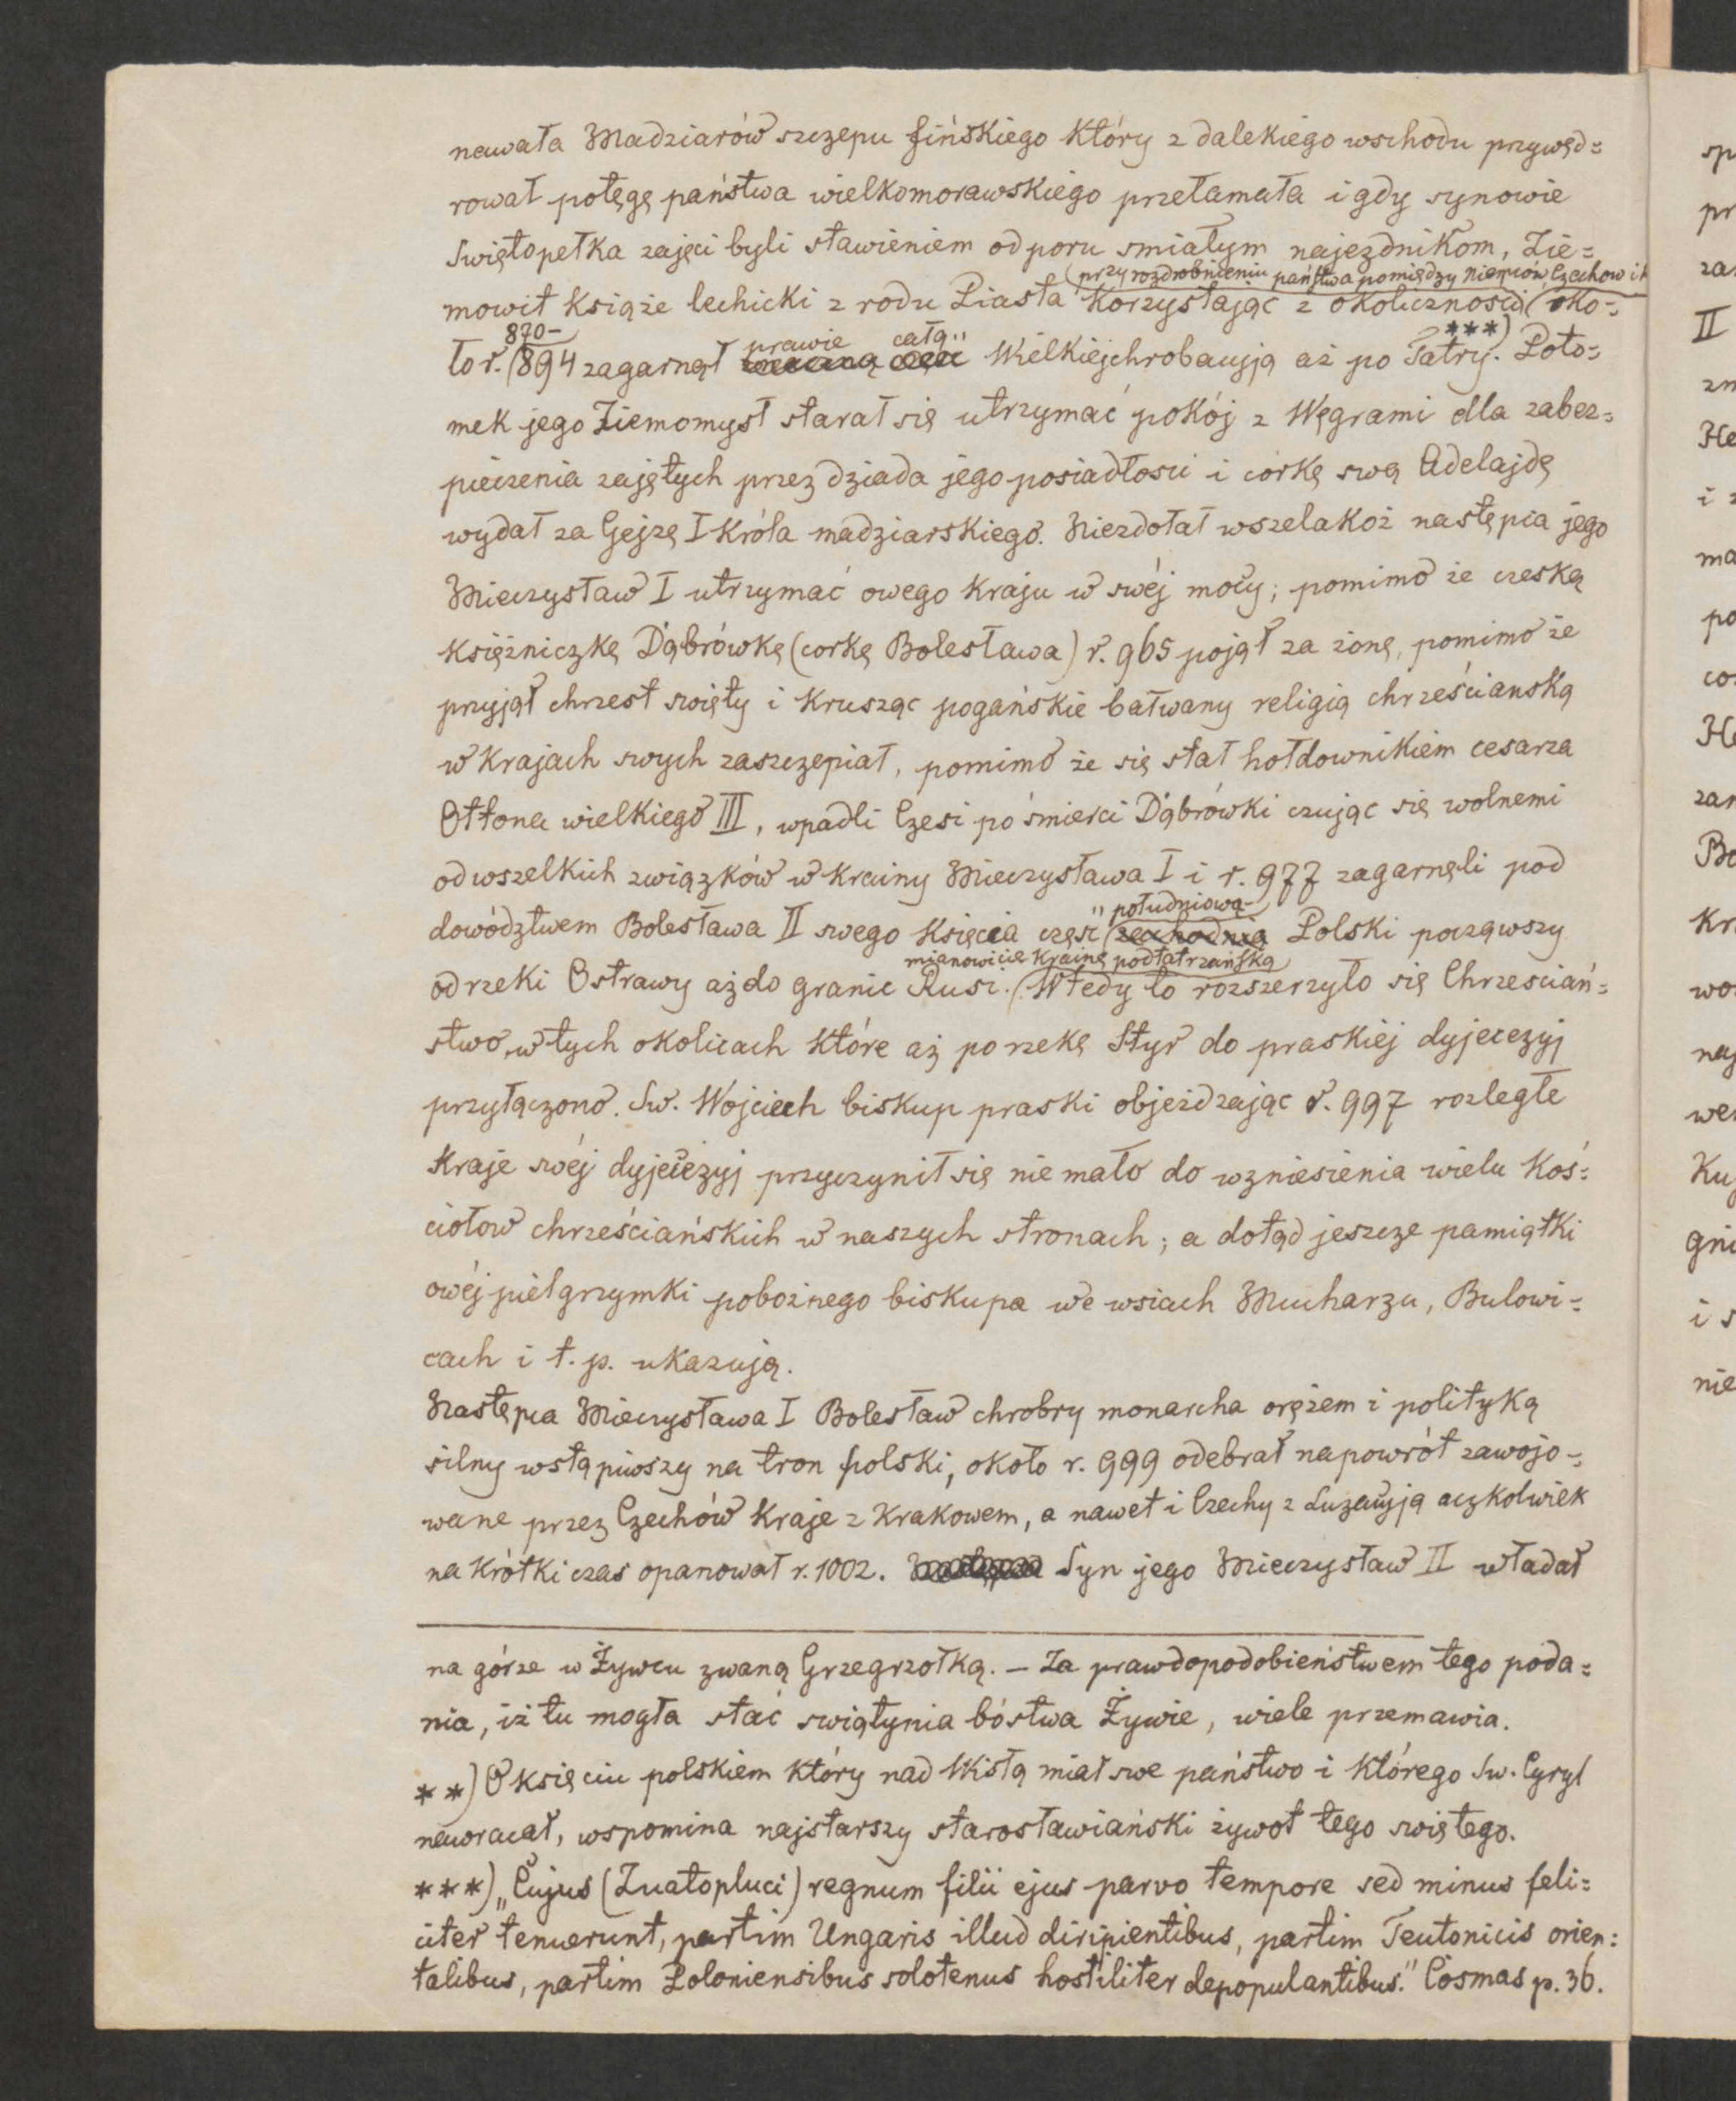 nawała Madziarów szczepu fińskiego który z dalekiego wschodu przywęd=
rował potęgę państwa wielkomorawskiego przełamała i gdy synowie
Swiętopełka zajęci byli stawieniem odporu smiałym najezdnikom, Zie=
(przy rozdrobnieniu państwa pomiędzy Niemców, Czechow i
mowit książe lechicki z rodu Piasta korzystając z okolicznosci (oko=
870- prawie całą" ***)
ło r. (894 zagarnął Wielkiejchrobacyją aż po Tatry. Poto=
mek jego Ziemomysł starał się utrzymać pokój z Węgrami dla zabez=
pieczenia zajętych przez dziada jego posiadłosci i córkę swą Adelajdę
wydał za Gejzę I króla madziarskiego. Niezdołał wszelakoż następca jego
Mieczysław I utrzymać owego kraju w swéj mocy; pomimo że czeską
księżniczkę Dąbrówkę (corkę Bolesława) r. 965 pojął za żonę, pomimo że
przyjął chrzest swięty i krusząc pogańskie bałwany religią chrześcianską
w krajach swych zaszczepiał, pomimo że się stał hołdownikiem cesarza
Ottona wielkiego III, wpadli Czesi po śmierci Dąbrówki czując się wolnemi
od wszelkich związków w krainy Mieczysława I i r. 977 zagarnęli pod
" południową-
dowództwem Bolesława II swego księcia częsć (zachodnią Polski począwszy
mianowicie krainę podtatrzańską
od rzeki Ostrawy aż do granic Rusi. (Wtedy to rozszerzyło się Chrzesciań=
stwo, w tych okolicach które aż po rzekę Styr do praskiéj dyjecezyj
przyłączono. Sw. Wojciech biskup praski objeżdzając r. 997 rozległe
kraje swéj dyjecezyj przyczynił się nie mało do wzniesienia wielu koś=
ciołow chrześciańskich w naszych stronach; a dotąd jeszcze pamiątki
owéj pielgrzymki pobożnego biskupa we wsiach Mucharzu, Bulowi=
cach i t. p. ukazują.
Następca Mieczysława I Bolesław chrobry monarcha orężem i polityką
silny wstąpiwszy na tron polski, około r. 999 odebrał napowrót zawojo=
wane przez Czechów kraje z Krakowem, a nawet i Czechy z Luzacyją aczkolwiek
na krótki czas opanował r. 1002. Następca Syn jego Mieczysław II władał
na górze w Żywcu zwaną Grzegrzołką. – Za prawdopodobieństwem tego poda=
nia, iż tu mogła stać swiątynia bóstwa Żywie, wiele przemawia.
**) O księciu polskiem który nad Wisłą miał swe państwo i którego Sw. Cyryl
nawracał, wspomina najstarszy starosławiański żywot tego swiętego.
***) „Cujus (Zuatopluci) regnum filii ejus parvo tempore sed minus feli=
citer tenuerunt, partim Ungaris illud diripientibus, partim Teutonicis orien=
talibus, partim Poloniensibus solotenus hostiliter depopulantibus." Cosmas p. 36.